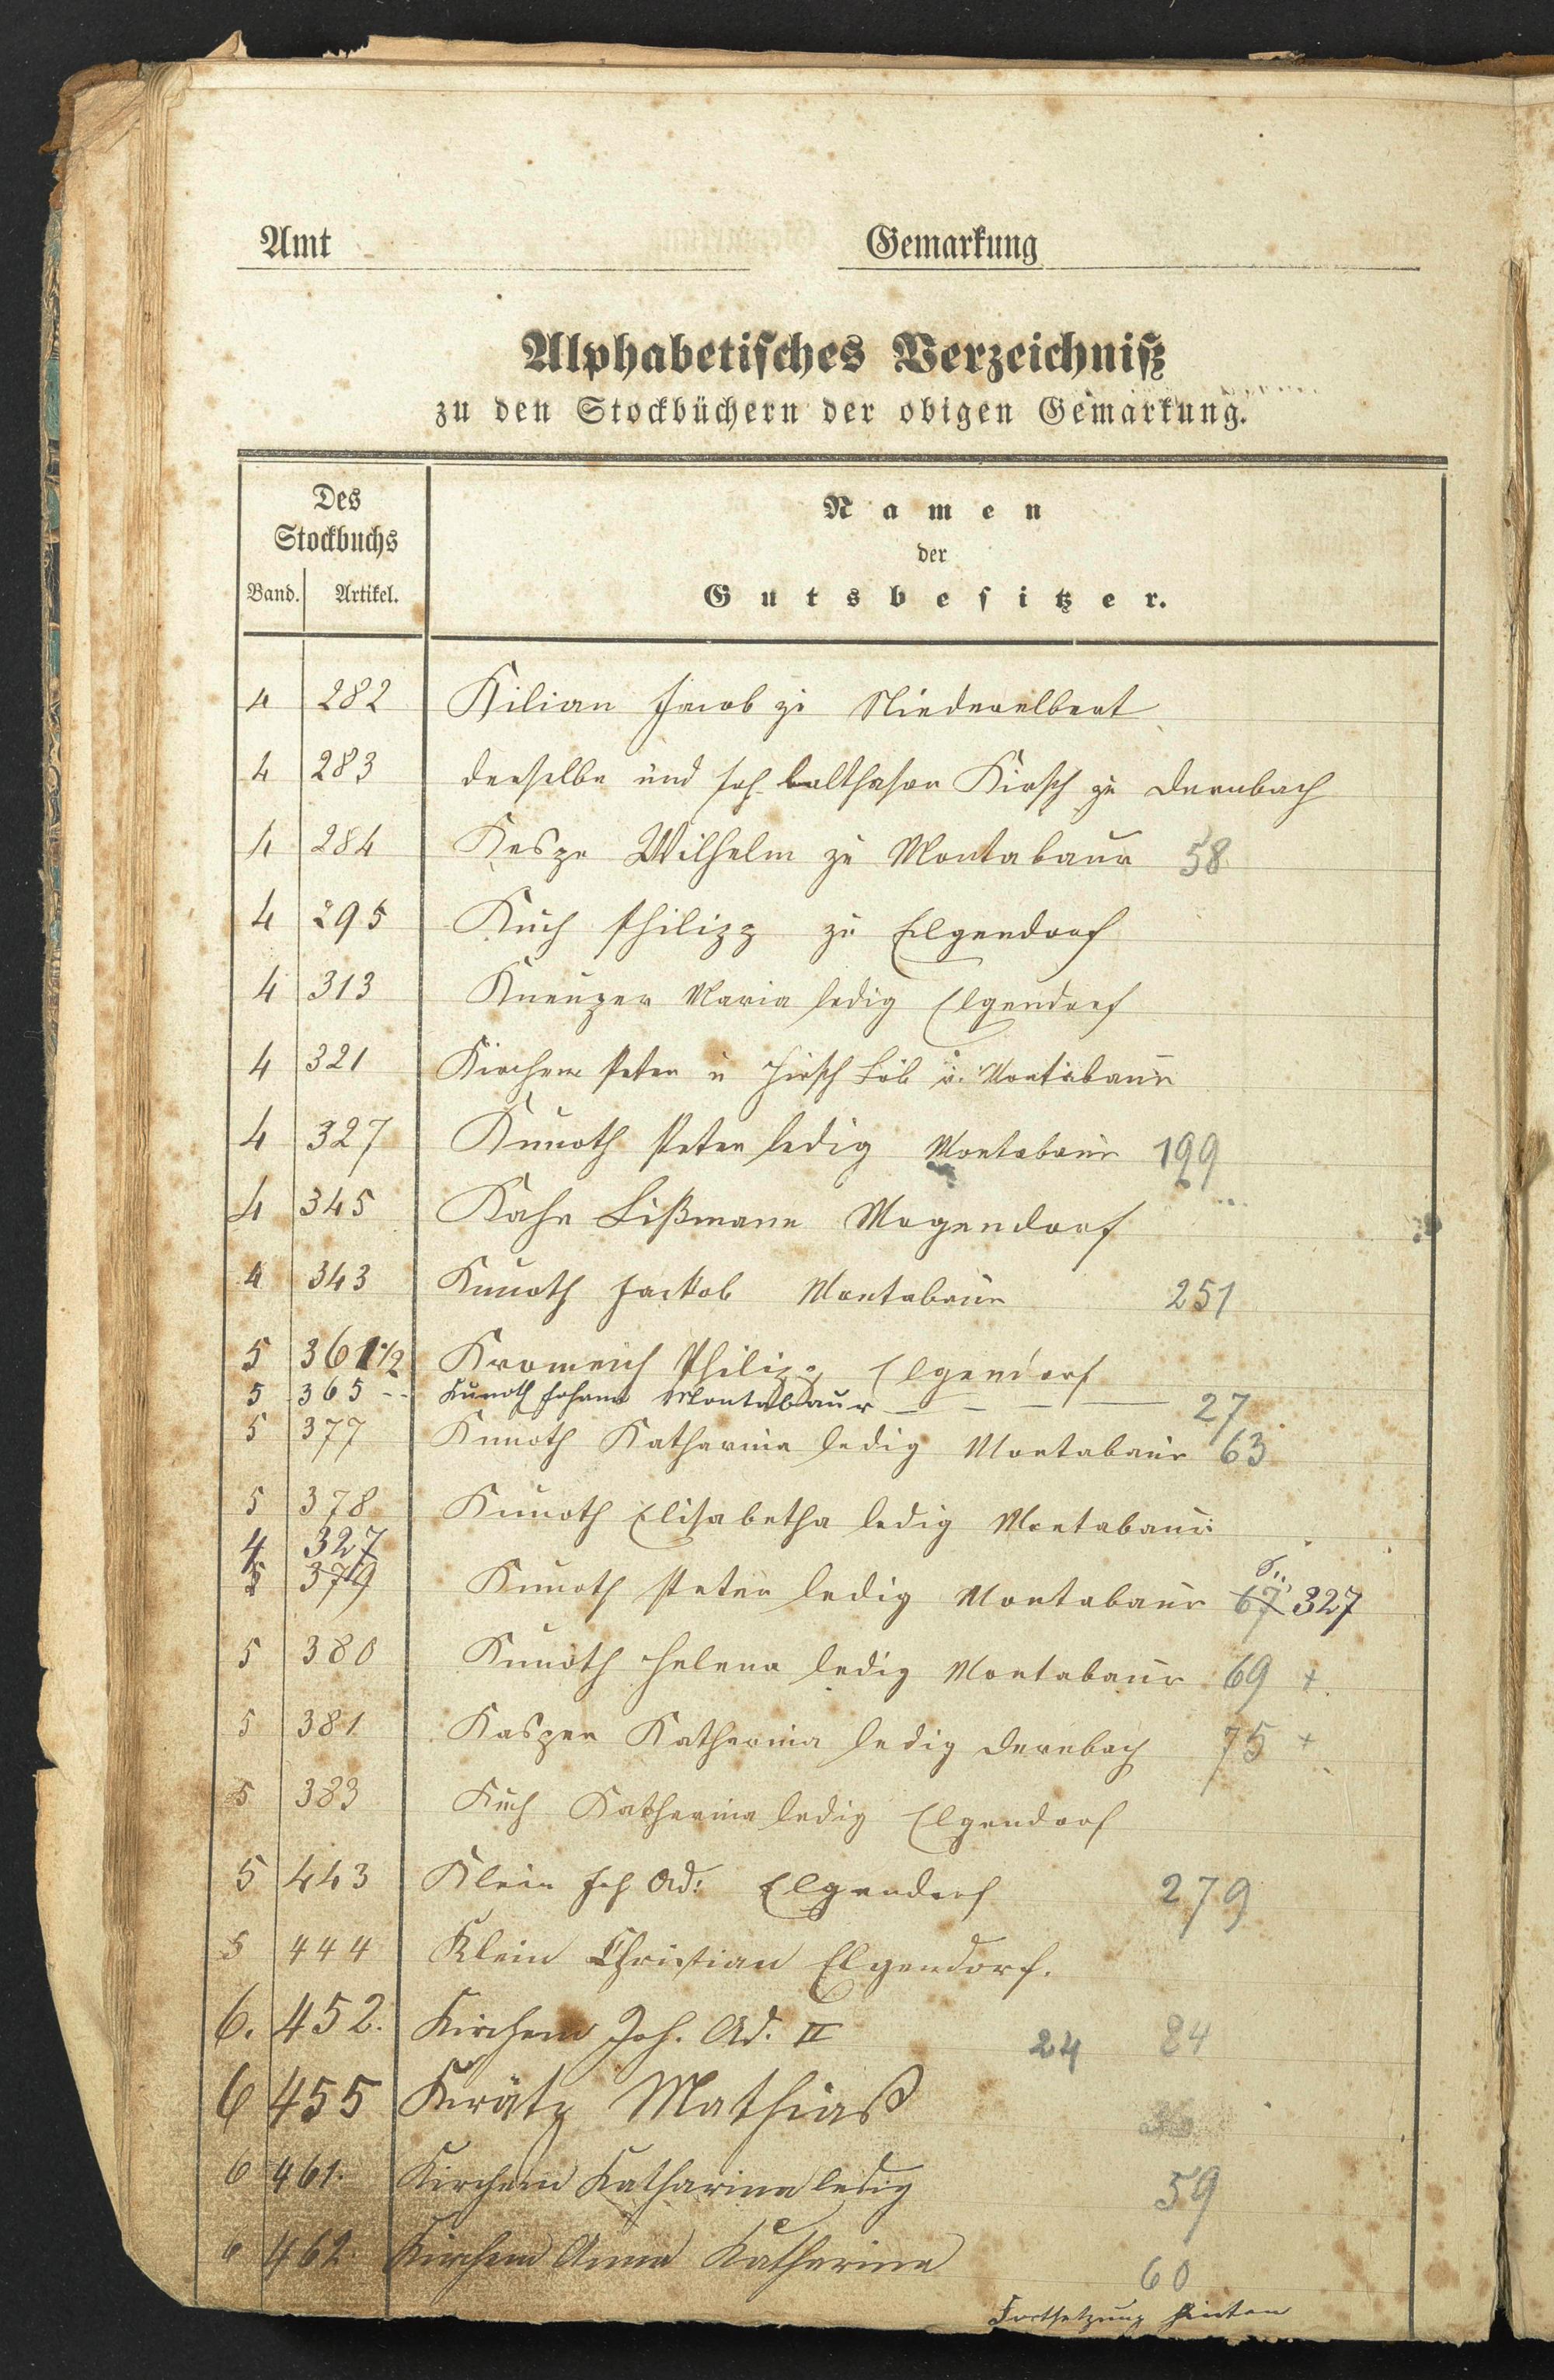 Amt Gemarkung
Alphabetisches Verzeichniß
zu den Stockbüchern der obigen Gemarkung.
Des
Stockbuchs
Band. Artikel.
Namen
der
Gutsbesitzer.
4 282 Kilian Jacob zu Niederelbert
4 283 derselbe und Joh. Balthasar Kirsch zu Dernbach
4 284 Wilhelm zu Montabaur 58
4 295 Kuch Philipp zu Elgendorf
4 313 Maria ledig Elgendorf
4 321 Kirchem Peter u Hirsch Löb v. Montabaur
4 327 Kunoth Peter ledig Montabaur 199
4 345 Kahn Mogendorf
4 343 Kunoth Jackob Montabaur 251
5 361 1/2 Kromeich Philipp Elgendorf
5 365 Kunoth Johann Montabaur 27
5 377 Kunoth Katharina ledig Montabaur 63
5 378 Kunoth Elisabetha ledig Montabaur
4 327
5 379 Kunoth Peter ledig Montabaur 67 327
5 380 Kunoth Helena ledig Montabaur 69 +
5 381 Kasper Katharina ledig Dernbach 75 +
5 383 Kuch Katharina ledig Elgendorf
5 443 Klein Joh Ad: Elgendorf 279
5 444 Klein Christian Elgendorf.
6. 452. Kirchem Joh. Ad. II 24 84
6 455 Krätz Mathiaß
6 461. Kirchem Katharina ledig 59
6 462. Kirchem Anna Katharina 60
Fortsetzung hinten